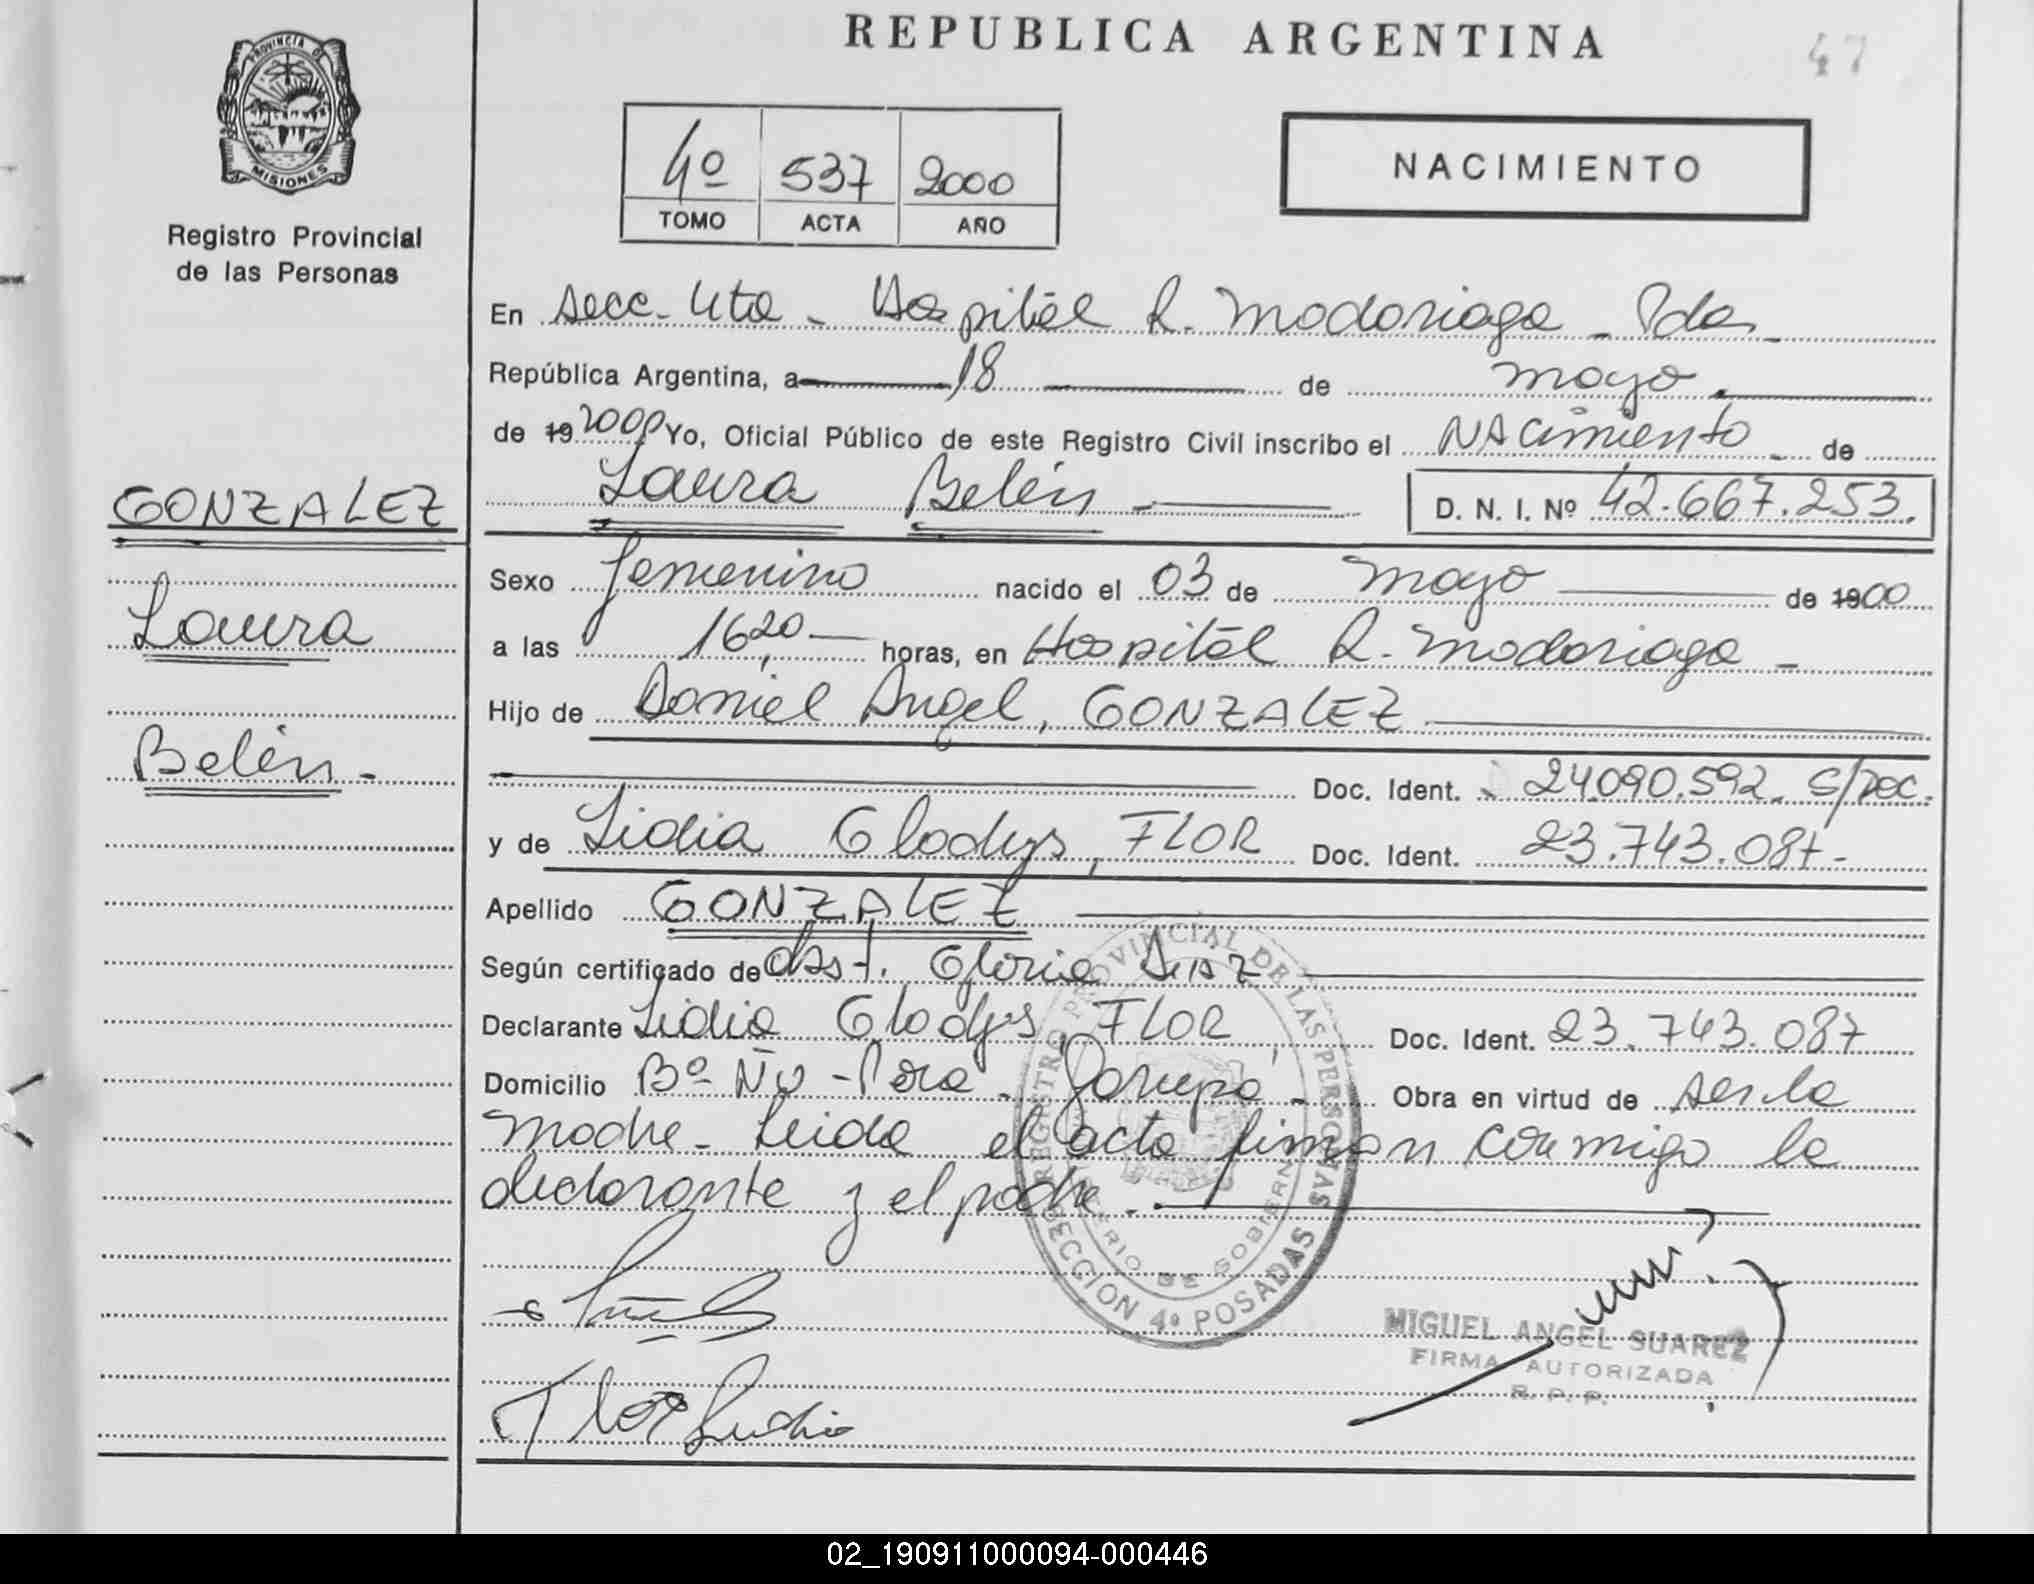 REPUBLICA ARGENTINA
47
PROVINCIA DE
MISIONES
Registro Provincial
de las Personas
4º 537 2000
TOMO ACTA AÑO
NACIMIENTO
En Secc. 4ta - Hospital R. Madariaga - Pdas
República Argentina, a 18 de mayo
de 19 2000 Yo, Oficial Público de este Registro Civil inscribo el NACimiento de
Laura Belén
D. N. I. Nº 42.667.253.
GONZALEZ
Laura
Belén -
Sexo femenino nacido el 03 de mayo de 1900
a las 16,20 horas, en Hospital R. Madariaga -
Hijo de Daniel Angel, GONZALEZ
Doc. Ident. 24.090.592. S/Doc.
y de Lidia Gladys, FLOR Doc. Ident. 23.743.087-
Apellido GONZALEZ
Según certificado de Obst. Gloria Diaz
Declarante Lidia Gladys, FLOR Doc. Ident. 23.743.087
Domicilio Bº Ñu-Pora. Garupá - Obra en virtud de ser la
madre - Leida el acta firman conmigo la
declarante y el padre.
REGISTRO PROVINCIAL DE LAS PERSONAS
SECCION 4ª POSADAS
MINISTERIO DE GOBIERNO
Flor Lidia
MIGUEL ANGEL SUAREZ
FIRMA AUTORIZADA
R. P. P.
02_190911000094-000446